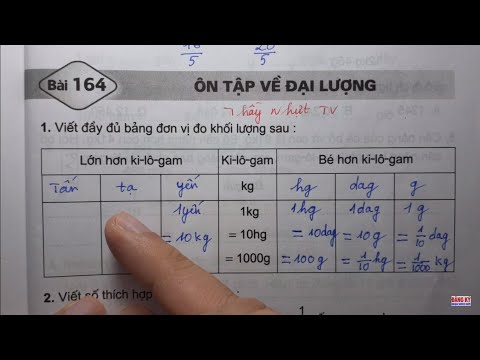 5 5
Bài 164 ÔN TẬP VỀ ĐẠI LƯỢNG
Thầy Nhựt TV
1. Viết đầy đủ bảng đơn vị đo khối lượng sau :
Lớn hơn ki-lô-gam Ki-lô-gam Bé hơn ki-lô-gam
Tấn tạ yến kg hg dag g
1yến 1kg 1hg 1dag 1g
= 10kg = 10hg = 10dag = 10g = 1/10 dag
= 1000g = 100g = 1/10 hg = 1/1000 kg
2. Viết số thích hợp
1
ĐĂNG KÝ